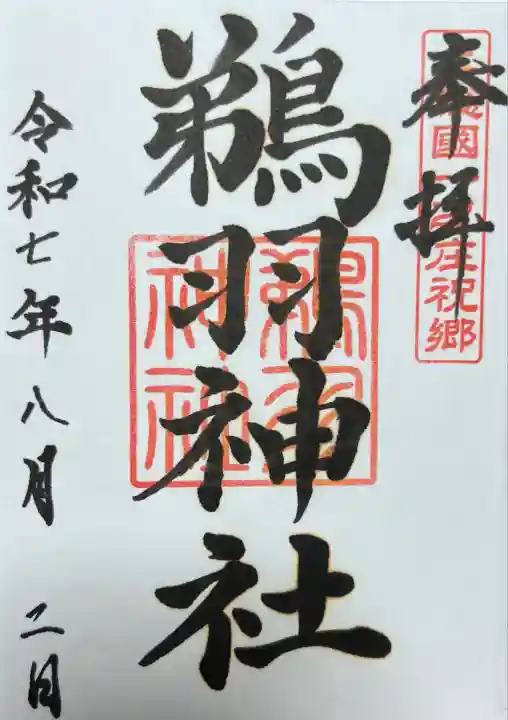 奉拝
國
庄祝郷
鵜羽神社
鵜羽
神社
令和七年八月二日